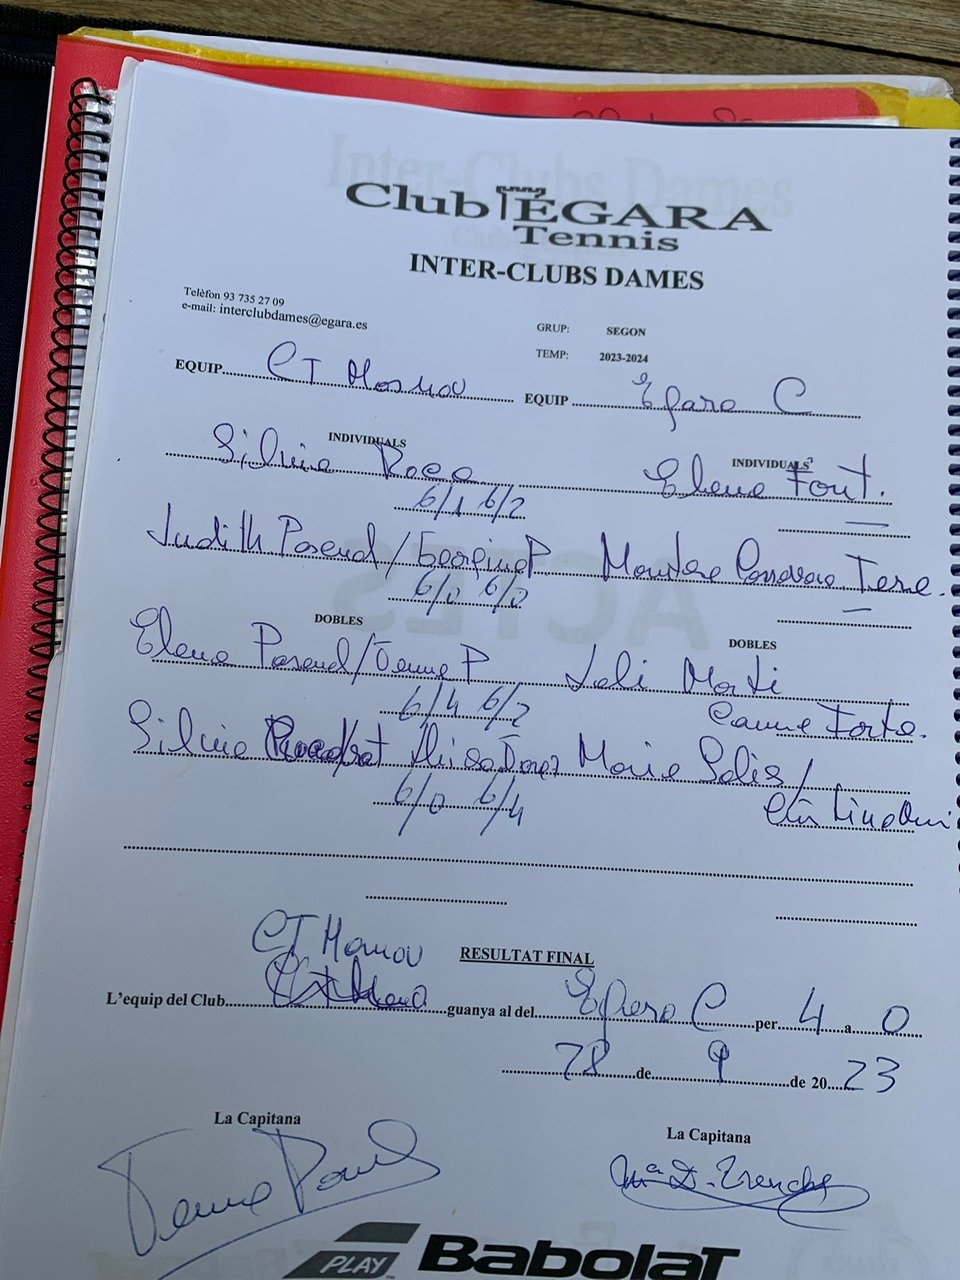 Club EGARA
Tennis
INTER-CLUBS DAMES
Telèfon 93 735 27 09
e-mail: interclubdames@egara.es
GRUP: SEGON
TEMP: 2023-2024
EQUIP CT Masnou EQUIP Egara C
INDIVIDUALS INDIVIDUALS
Silvia Roca Elena Font.
6/1 6/2
Judith Pascual / Georgina P Montse Tene.
6/2 6/2
DOBLES DOBLES
Elena Pascual / Janna P Loli Marti
6/4 6/2 Carme Forto.
Silvia Maria Solis /
6/0 6/4
CT Masnou
RESULTAT FINAL
L'equip del Club guanya al del Egara C per 4 a 0
28 de 9 de 20 23
La Capitana La Capitana
Mª D. Trenchs
PLAY BabolaT